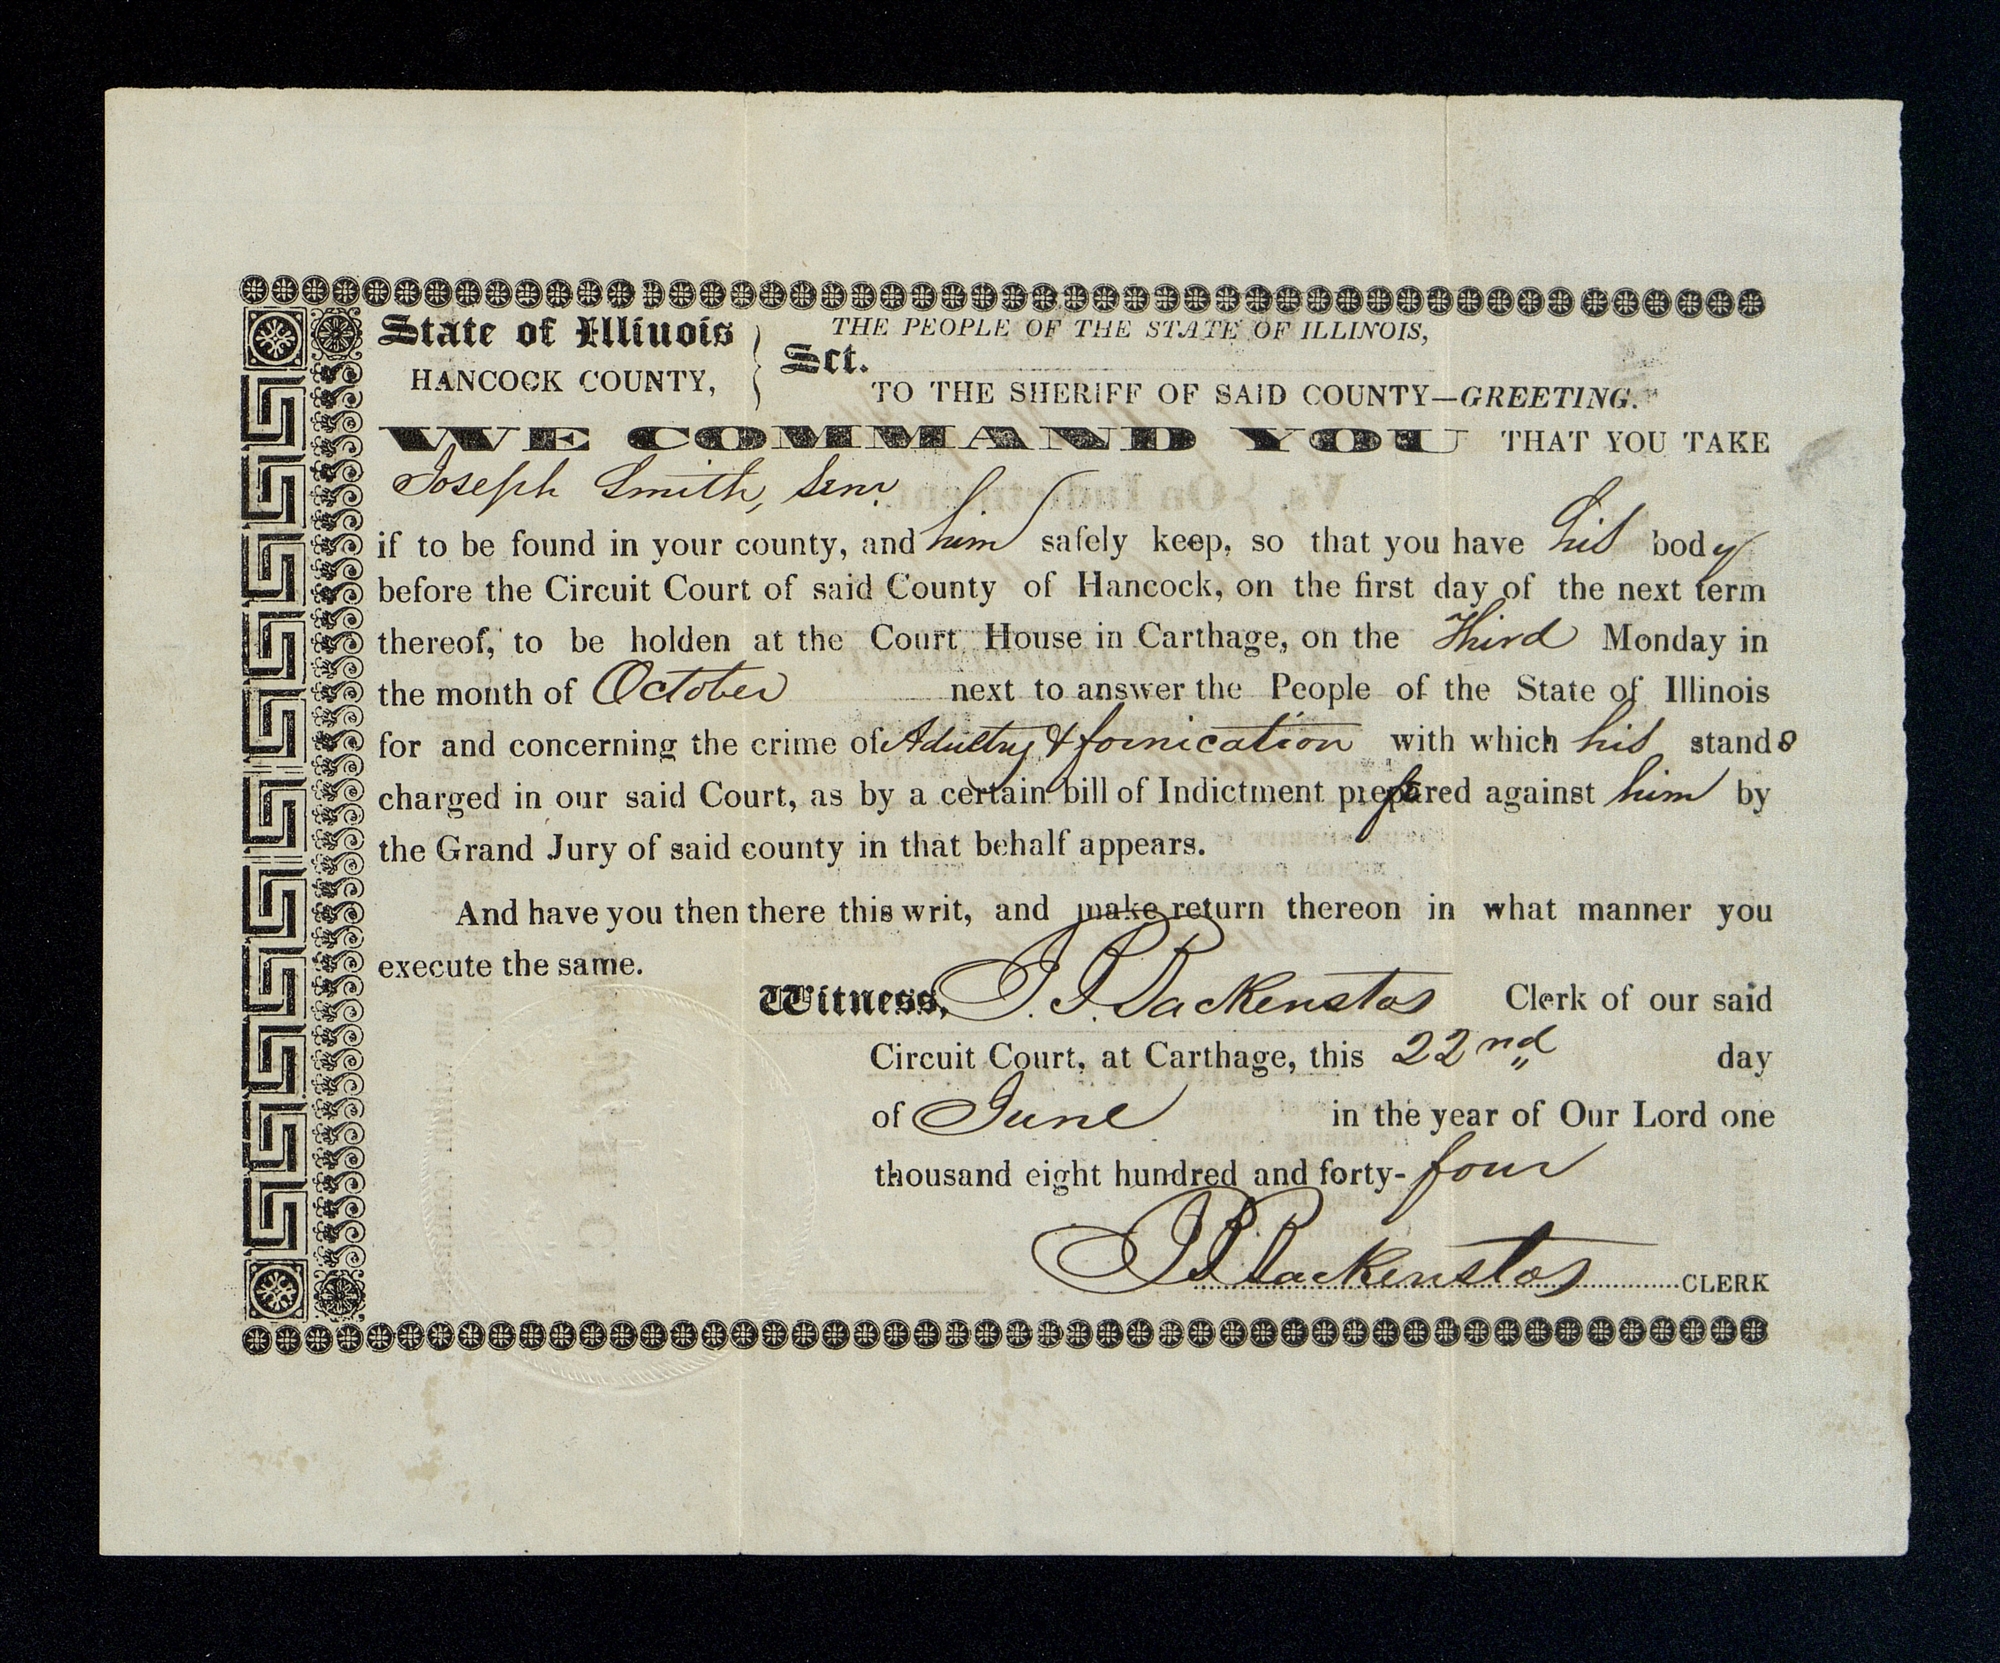 State of Illinois
HANCOCK COUNTY,
Sct.
THE PEOPLE OF THE STATE OF ILLINOIS,
TO THE SHERIFF OF SAID COUNTY—GREETING.
WE COMMAND YOU THAT YOU TAKE
Joseph Smith, Senr
if to be found in your county, and him safely keep, so that you have his body
before the Circuit Court of said County of Hancock, on the first day of the next term
thereof, to be holden at the Court House in Carthage, on the Third Monday in
the month of October next to answer the People of the State of Illinois
for and concerning the crime of Adultry & fornication with which his stands
charged in our said Court, as by a certain bill of Indictment prepared against him by
the Grand Jury of said county in that behalf appears.
And have you then there this writ, and make return thereon in what manner you
execute the same.
Witness, J. B. Backenstos Clerk of our said
Circuit Court, at Carthage, this 22nd day
of June in the year of Our Lord one
thousand eight hundred and forty-four
J B Backenstos CLERK